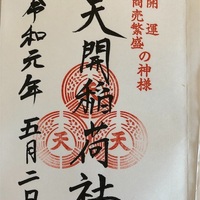 開運
商売繁盛の神様
天開稲荷社
天
天
天
令和元年五月二日